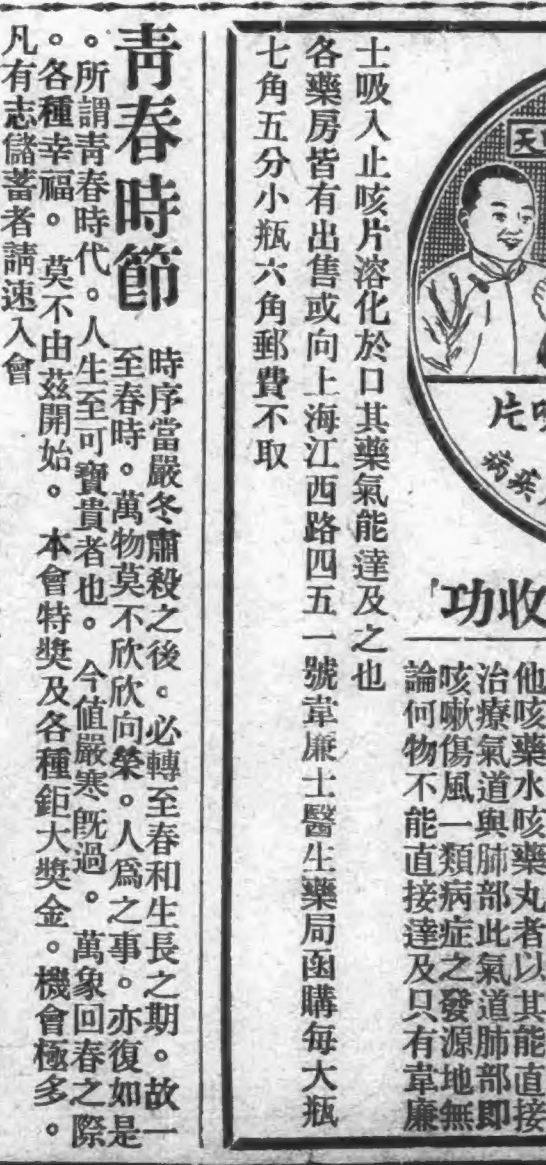 天
片
病疾
功收
他咳藥水咳藥丸者以其能直接
治療氣道與肺部此氣道肺部即
咳嗽傷風一類病症之發源地無
論何物不能直接達及只有韋廉
士吸入止咳片溶化於口其藥氣能達及之也
各藥房皆有出售或向上海江西路四五一號韋廉士醫生藥局函購每大瓶
七角五分小瓶六角郵費不取
青春時節
時序當嚴冬肅殺之後。必轉至春和生長之期。故一
至春時。萬物莫不欣欣向榮。人爲之事。亦復如是
。所謂青春時代。人生至可寶貴者也。今值嚴寒旣過。萬象回春之際
。各種幸福。莫不由茲開始。本會特獎及各種鉅大獎金。機會極多。
凡有志儲蓄者請速入會